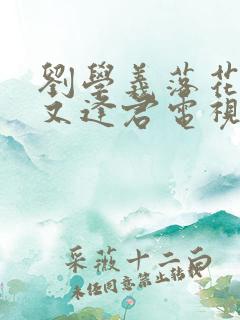 劉學義落花
又逢君電視
采薇十二白
未任同意禁止转载